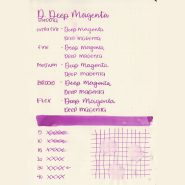 D. Deep Magenta
Extra Fine - Deep Magenta
Deep Magenta
Fine - Deep Magenta
Deep Magenta
Medium - Deep Magenta
Deep Magenta
Broad - Deep Magenta
Deep Magenta
Flex - Deep Magenta
Deep Magenta
10 xxxxx
20 xxxxx
30 xxxxx
40 xxxxx